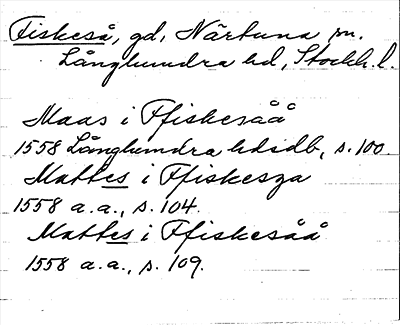 Fiskeså, gd, Närtuna sn.
Långhundra hd, Stockh. l.
Maas i Ffiskesåå
1558 Långhundra hdsdb, s. 100.
Mattes i Ffiskesza
1558 a.a., s. 104.
Mattes i Ffiskesåå
1558 a.a., s. 109.